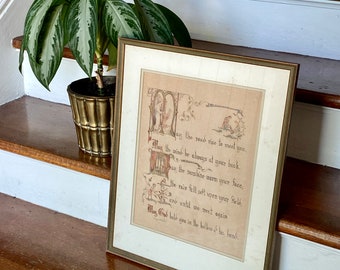 May the road rise to meet you.
May the wind be always at your back.
May the sunshine warm your face,
the rain fall soft upon your field,
And until we meet again
May God hold you in the hollow of his hand.